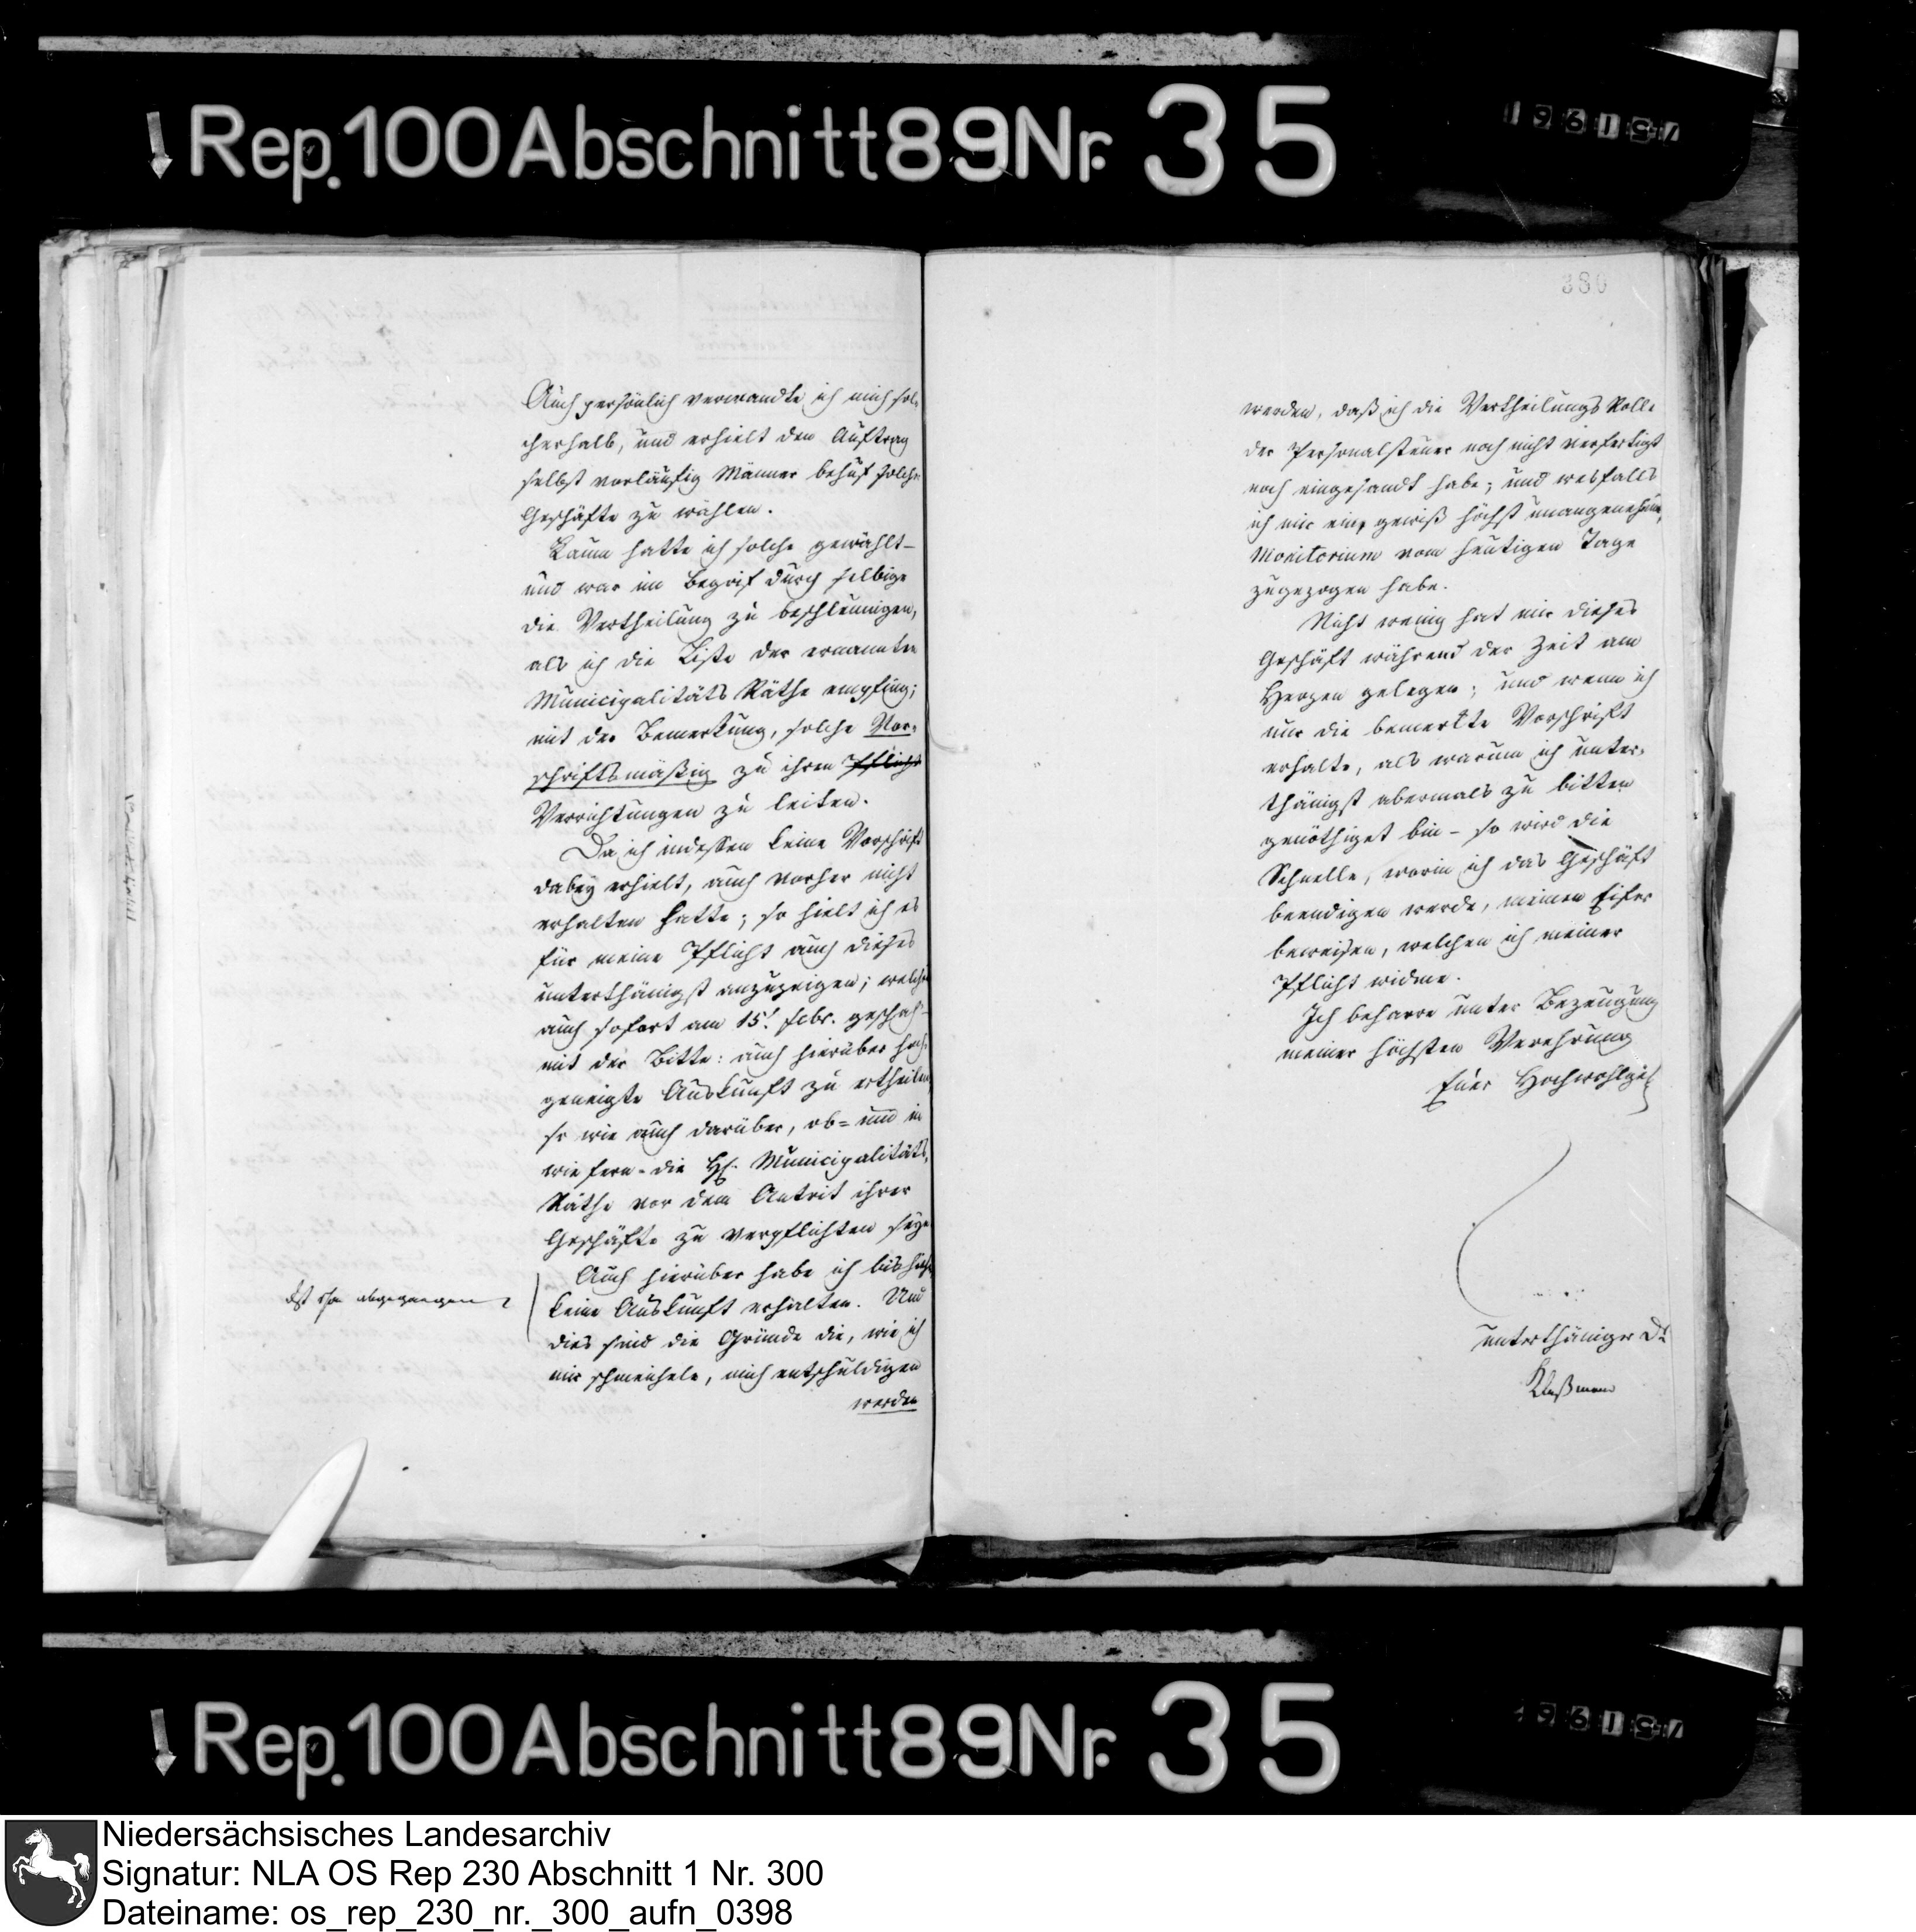 Rep. 100 Abschnitt 89 Nr. 35
Auch persönlich verwandte ich mich sol-
cherhalb, und erhielt den Auftrag
selbst vorläufig Männer behuf solcher
Geschäfte zu wählen.
Kaum hatte ich solche gewählt-
und war im Begrif durch selbige
die Vertheilung zu beschleunigen,
als ich die Liste der ernannten
Municipalitäts Räthe empfing;
mit der Bemerkung, solche Vor-
schriftsmäßig zu ihren Pflicht
Verrichtungen zu leiten.
Da ich indessen keine Vorschrift
dabey erhielt, auch vorher nicht
erhalten hatte; so hielt ich es
für meine Pflicht auch dieses
unterthänigst anzuzeigen; welches
auch sofort am 15t. Febr. geschah-
mit der Bitte: auch hierüber hoch-
geneigte Auskunft zu ertheilen,
so wie auch darüber, ob= und in
wie fern- die HH. Municipalitäts-
Räthe vor dem Antrit ihrer
Geschäfte zu verpflichten seyn
Auch hierüber habe ich bis
keine Auskunft erhalten. Und
dies sind die Gründe die, wie ich
mir schmeichele, mich entschuldigen
werden
Ist abgegangen
380
werden, daß ich die Vertheilungs Rolle
der Personalsteuer noch nicht verfertigt
noch eingesandt habe; und wesfalls
ich mir ein, gewiß höchst unangenehmes,
Monitorium vom heutigen Tage
zugezogen habe.
Nicht wenig hat mir dieses
Geschäft während der Zeit am
Herzen gelegen; und wenn ich
nur die bemerkte Vorschrift
erhalte, als warum ich unter-
thänigst abermals zu bitten
genöthiget bin - so wird die
Schnelle, worin ich das Geschäft
beendigen werde, meinen Eifer
beweisen, welchen ich meiner
Pflicht widme.
Ich beharre unter Bezeugung
meiner höchsten Verehrung
Euer Hochwohlgeb
unterthäniger Dr
Rep. 100 Abschnitt 89 Nr. 35
Niedersächsisches Landesarchiv
Signatur: NLA OS Rep 230 Abschnitt 1 Nr. 300
Dateiname: os_rep_230_nr._300_aufn_0398